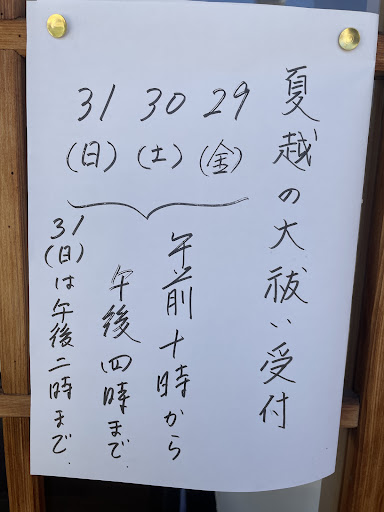 夏越の大祓い受付
29(金)
30(土)
31(日)
午前十時から
午後四時まで.
31(日)は午後二時まで.